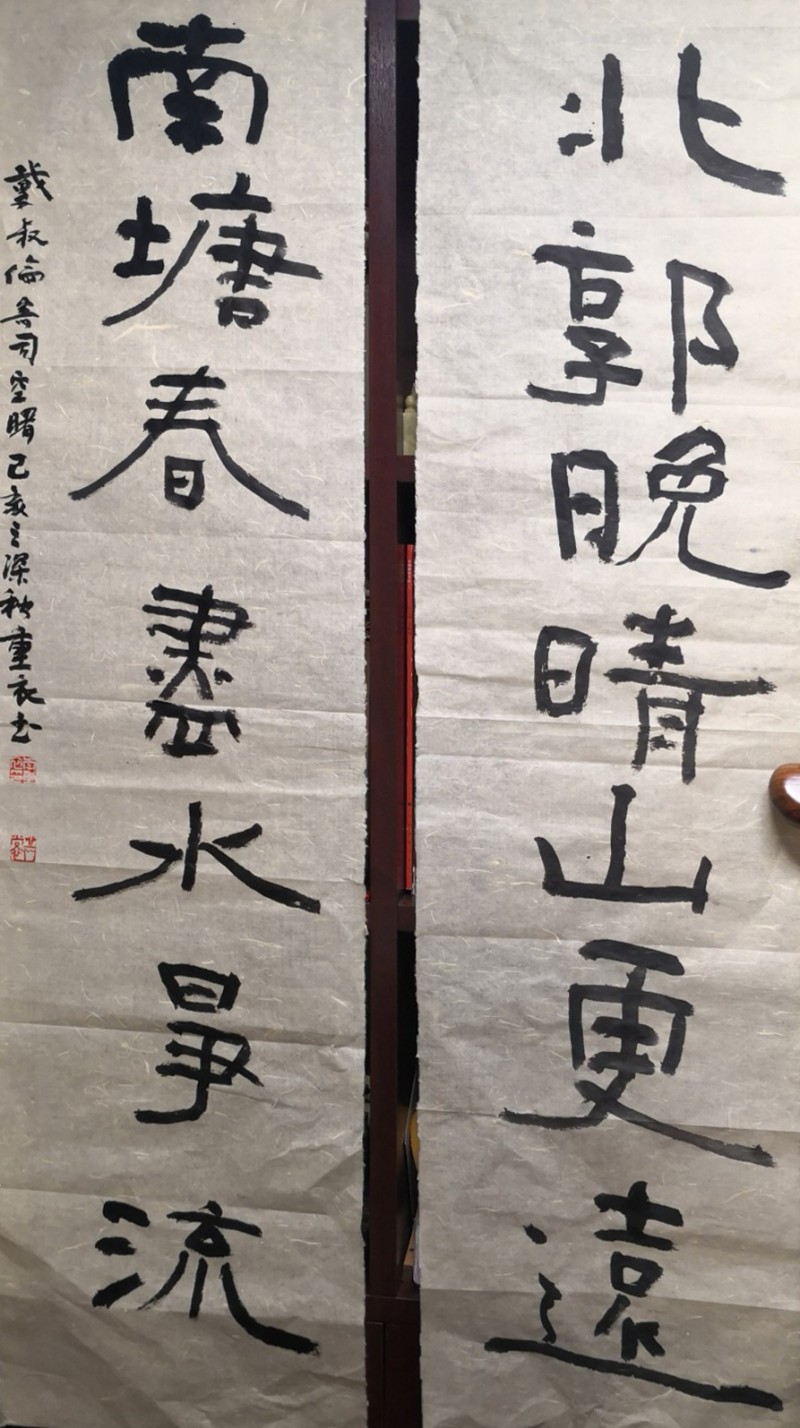 北郭晚晴山更遠
南塘春盡水爭流
戴叔倫答司空曙己亥之深秋重衣书